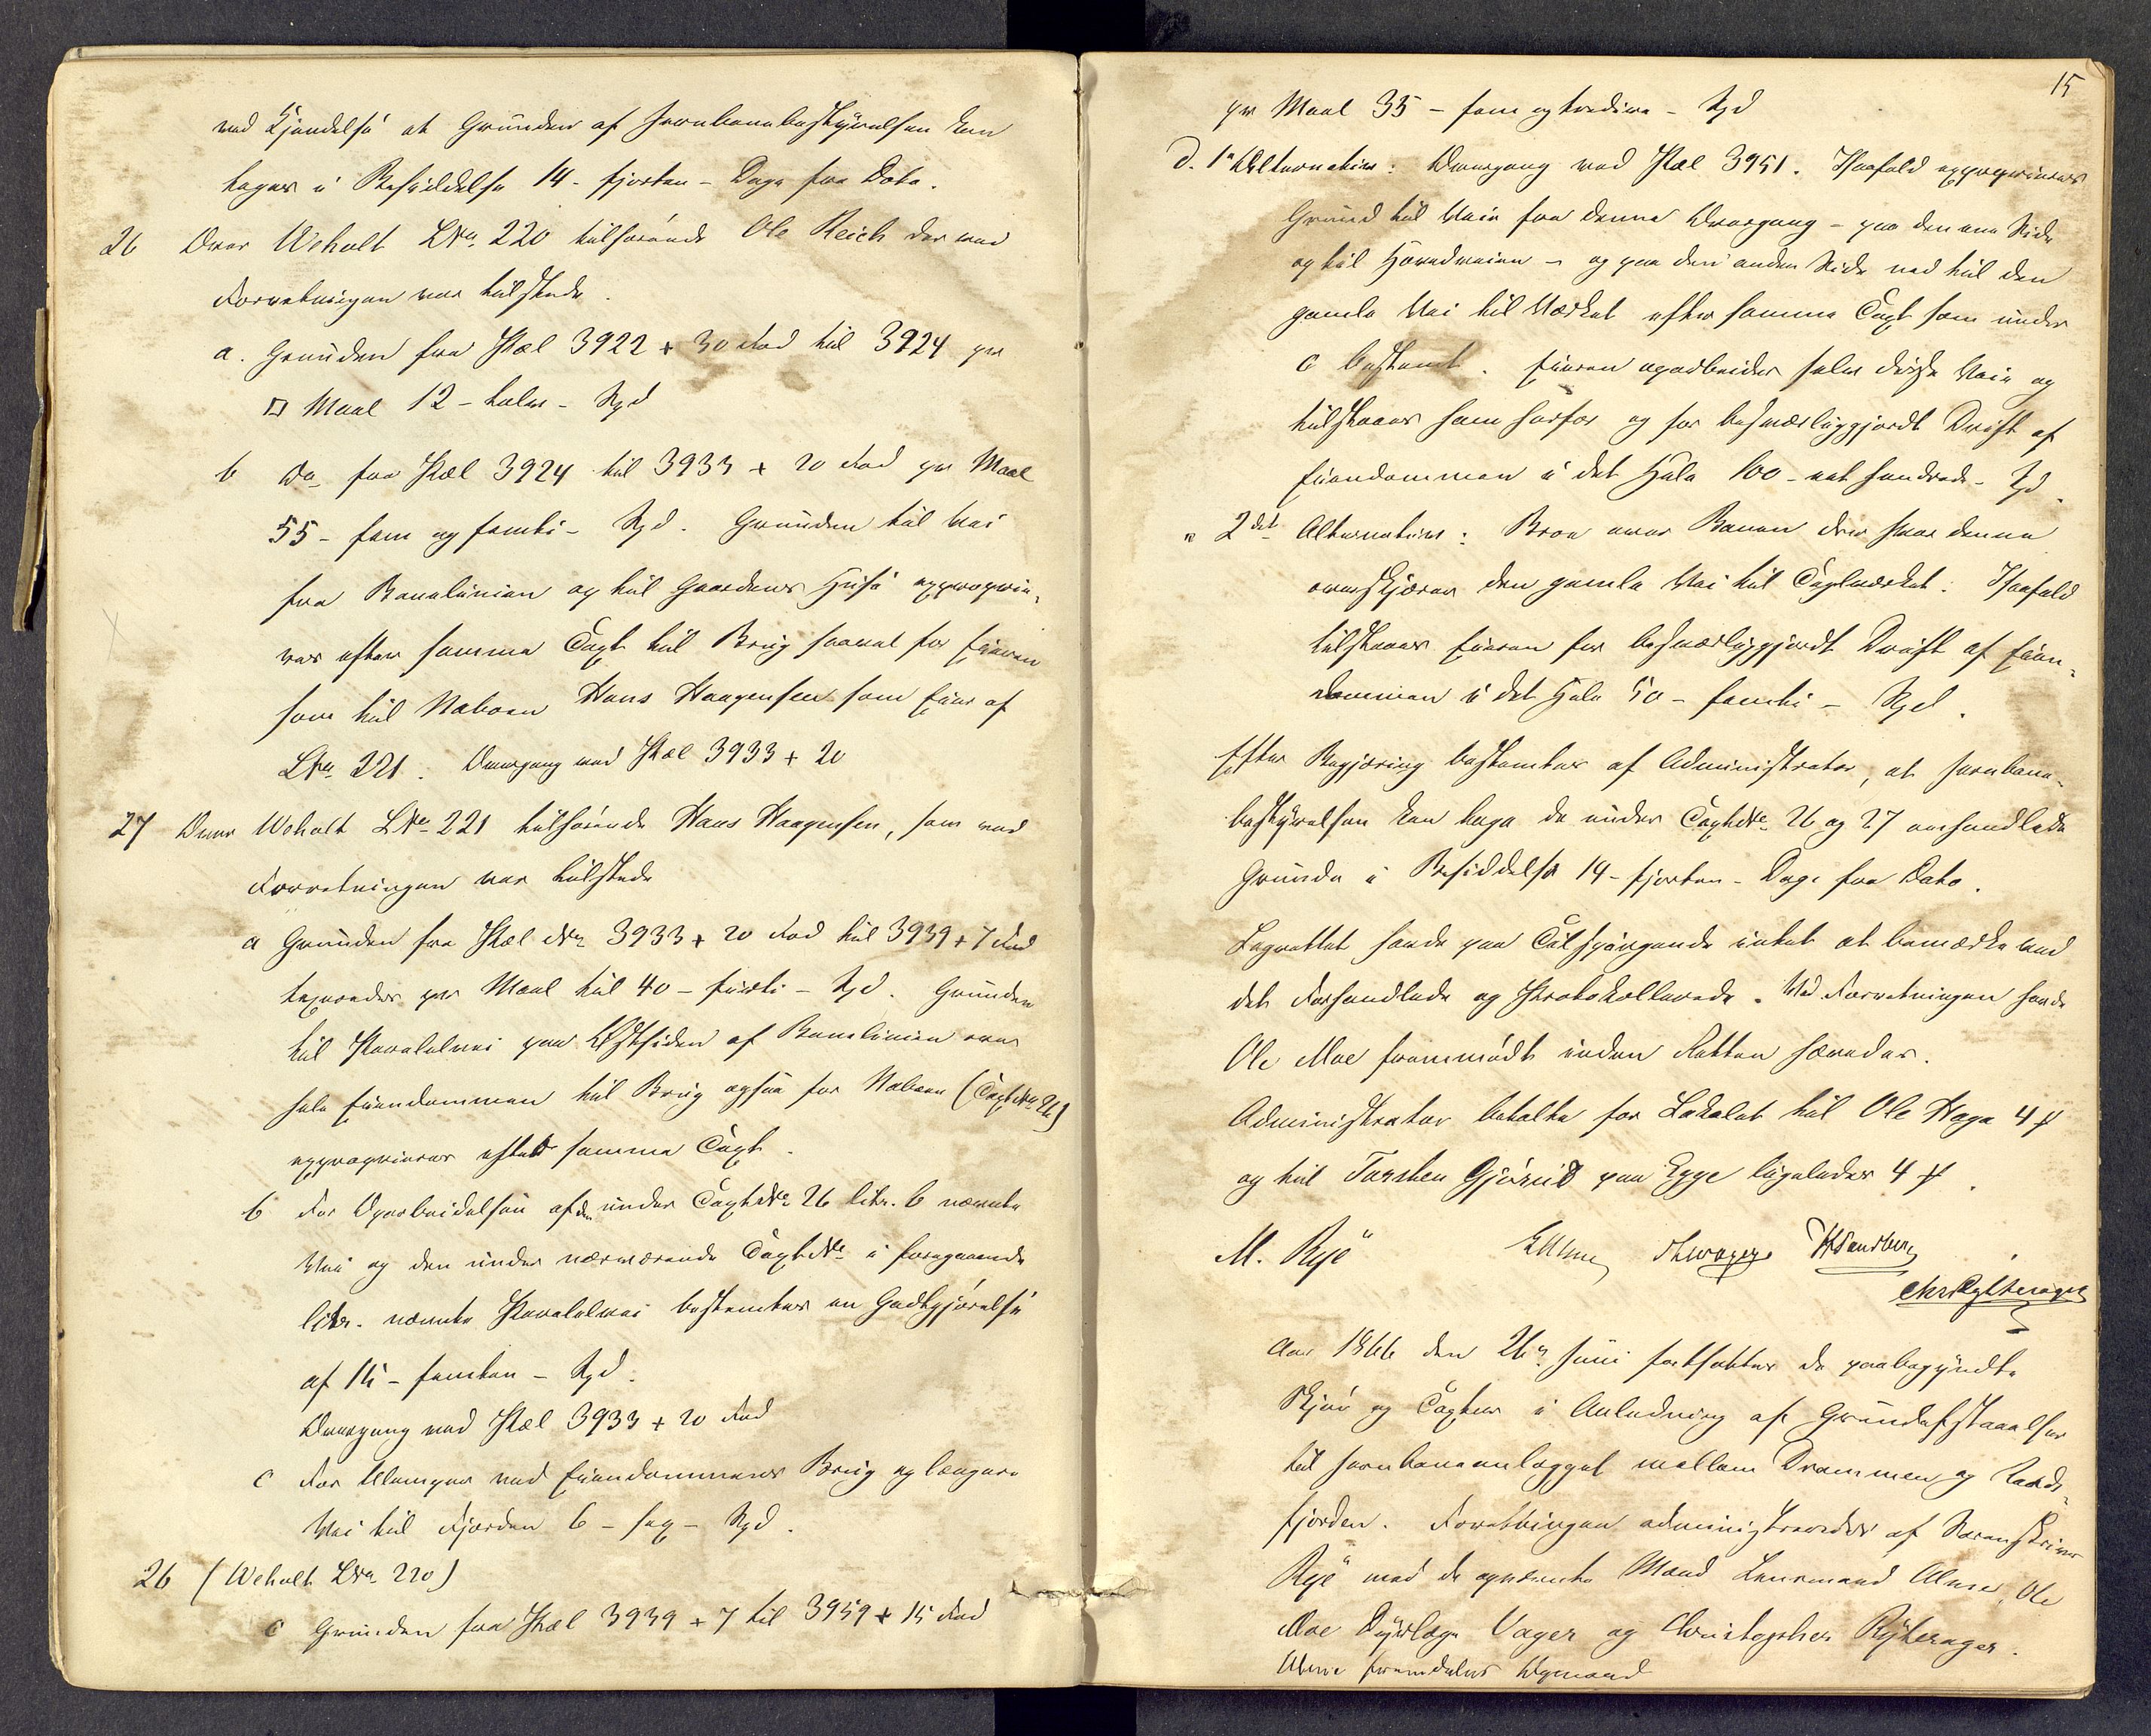 ved Kjendelse at Grunden af Jernbanebestyrelsen kan
tages i Besiddelse 14 - fjorten - Dage fra Dato.
26 Over Weholt LNo 220 tilhørende Ole Reich der ved
Forretningen var tilstede.
a. Grunden fra Pæl 3922 + 30 Fod til 3924 pr
□ Maal 12 - tolv - Spd
b Do fra Pæl 3924 til 3933 + 20 Fod pr Maal
55 - fem og femti - Spd. Grunden til Vei
fra Banelinien og til Gaardens Huse exproprie-
res efter samme Taxt til Brug saavel for Eieren
som til Naboen Hans Haagensen som Eier af
LNo 221. Overgang ved Pæl 3933 + 20
27 Over Weholt LNo 221 tilhørende Hans Haagensen, som ved
Forretningen var tilstede
a Grunden fra Pæl No 3933 + 20 Fod til 3939 + 7 Fod
taxeredes pr Maal til 40 - firti - Spd. Grunden
til Paralelvei paa Østsiden af Banelinien over
hele Eiendommen til Brug ogsaa for Naboen (Taxt No 26)
exproprieres efter samme Taxt.
b For Oparbeidelsen af den under Taxt No 26 litr. b nævnte
Vei og den under nærværende Taxt No i foregaaende
litr. nævnte Paralelvei bestemtes en Godtgjørelse
af 15 - femten - Spd.
Overgang ved Pæl 3933 + 20 Fod
c For Ulemper ved Eiendommens Brug og længere
Vei til Fjorden 6 - sex - Spd.
26 (Weholt LNo 220)
c Grunden fra Pæl 3939 + 7 til 3959 + 15 Fod
15
pr Maal 35 - fem og tredive - Spd
d. 1e Alternativ: Overgang ved Pæl 3951. Isaafald exproprieres
Grund til Vei fra denne Overgang - paa den ene Side
og til Hovedveien - og paa den anden Side ned til den
gamle Vei til Værket efter samme Taxt som under
c bestemt. Eieren oparbeider selv disse Veie og
tilstaaes ham herfor og for besværliggjordt Drift af
Eiendommen i det Hele 100 - eet hundrede - Spd.
" 2det Alternativ: Bro over Banen der hvor denne
overskjærer den gamle Vei til Teglværket: Isaafald
tilstaaes Eieren for besværliggjordt Drift af Eien-
dommen i det Hele 50 - femti - Spd.
Efter Begjæring bestemtes af Administrator, at Jernbane-
bestyrelsen kan tage de under Taxt No 26 og 27 omhandlede
Grunde i Besiddelse 14 - fjorten - Dage fra Dato.
Lagrettet havde paa Tilspørgende intet at bemærke ved
det Forhandlede og Protokollerede. Ved Forretningen havde
Ole Moe fremmødt inden Retten hævedes.
Administrator betalte for Lokalet til Ole Haga 4
og til Torsten Gjørud paa Egge ligeledes 4
M. Rye HSandberg
Aar 1866 den 26e Juni fortsattes de paabegyndte
Skjøn og Taxter i Anledning af Grundafstaaelser
til Jernbaneanlægget mellem Drammen og Rands-
fjorden. Forretningen administreredes af Sorenskriver
Rye med de opnævnte Mænd Lensmand Alme, Ole
Moe Dyrlæge Vager og Christopher Rytterager.